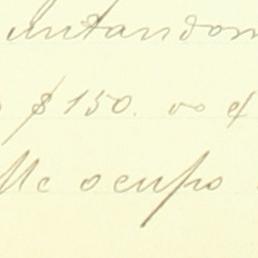 untandom
$150. vo
Me ocupo